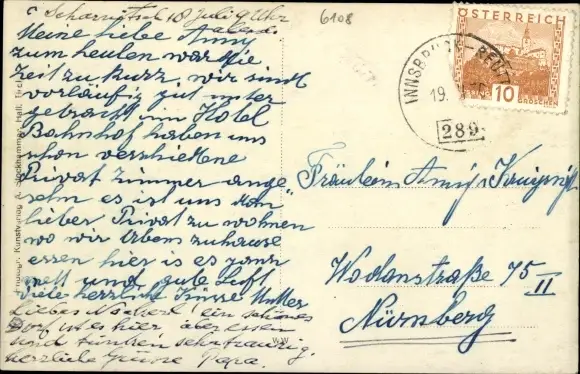 Scharnitz 18 Juli 9 Uhr
abends.
Meine liebe Anny
zum heulen war die
Zeit zu kurz, wir sind
vorläufig gut unter
gebracht im Hotel
Bahnhof haben uns
schon verschiedene
Privat Zimmer ange
sehn es ist uns dan
lieber Privat zu wohnen
wo wir Abens zuhause
essen hier is es ganz
nett und gute Luft
viele herzlich Küsse Mutter
Liebes ein schönes
Dorf ist es hier aber essen
und trinken sehr traurig.
herzliche Grüsse Papa.
6108
ÖSTERREICH
10 GROSCHEN
INNSBRUCK-REUT
19.
289
Fräulein Anny
Wodanstraße 75
II
Nürnberg
Kunstverlag A. Stockhammer, Hall, Tirol